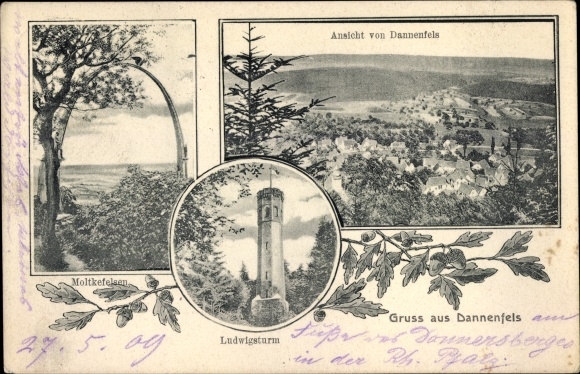 Ansicht von Dannenfels
Moltkefelsen
Ludwigsturm
Gruss aus Dannenfels am
Fuße des Donnersberges
in der Rh. Pfalz.
27. 5. 09